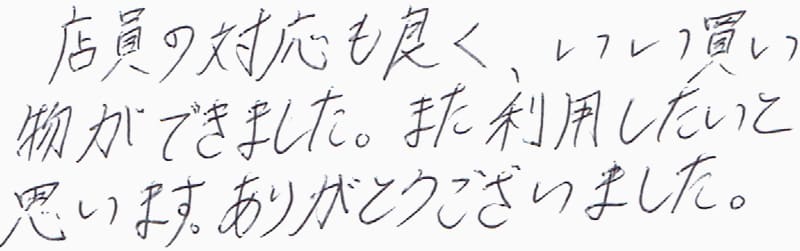 店員の対応も良く、いつしつ買い
物ができました。また利用したいと
思います。ありがとうございました。